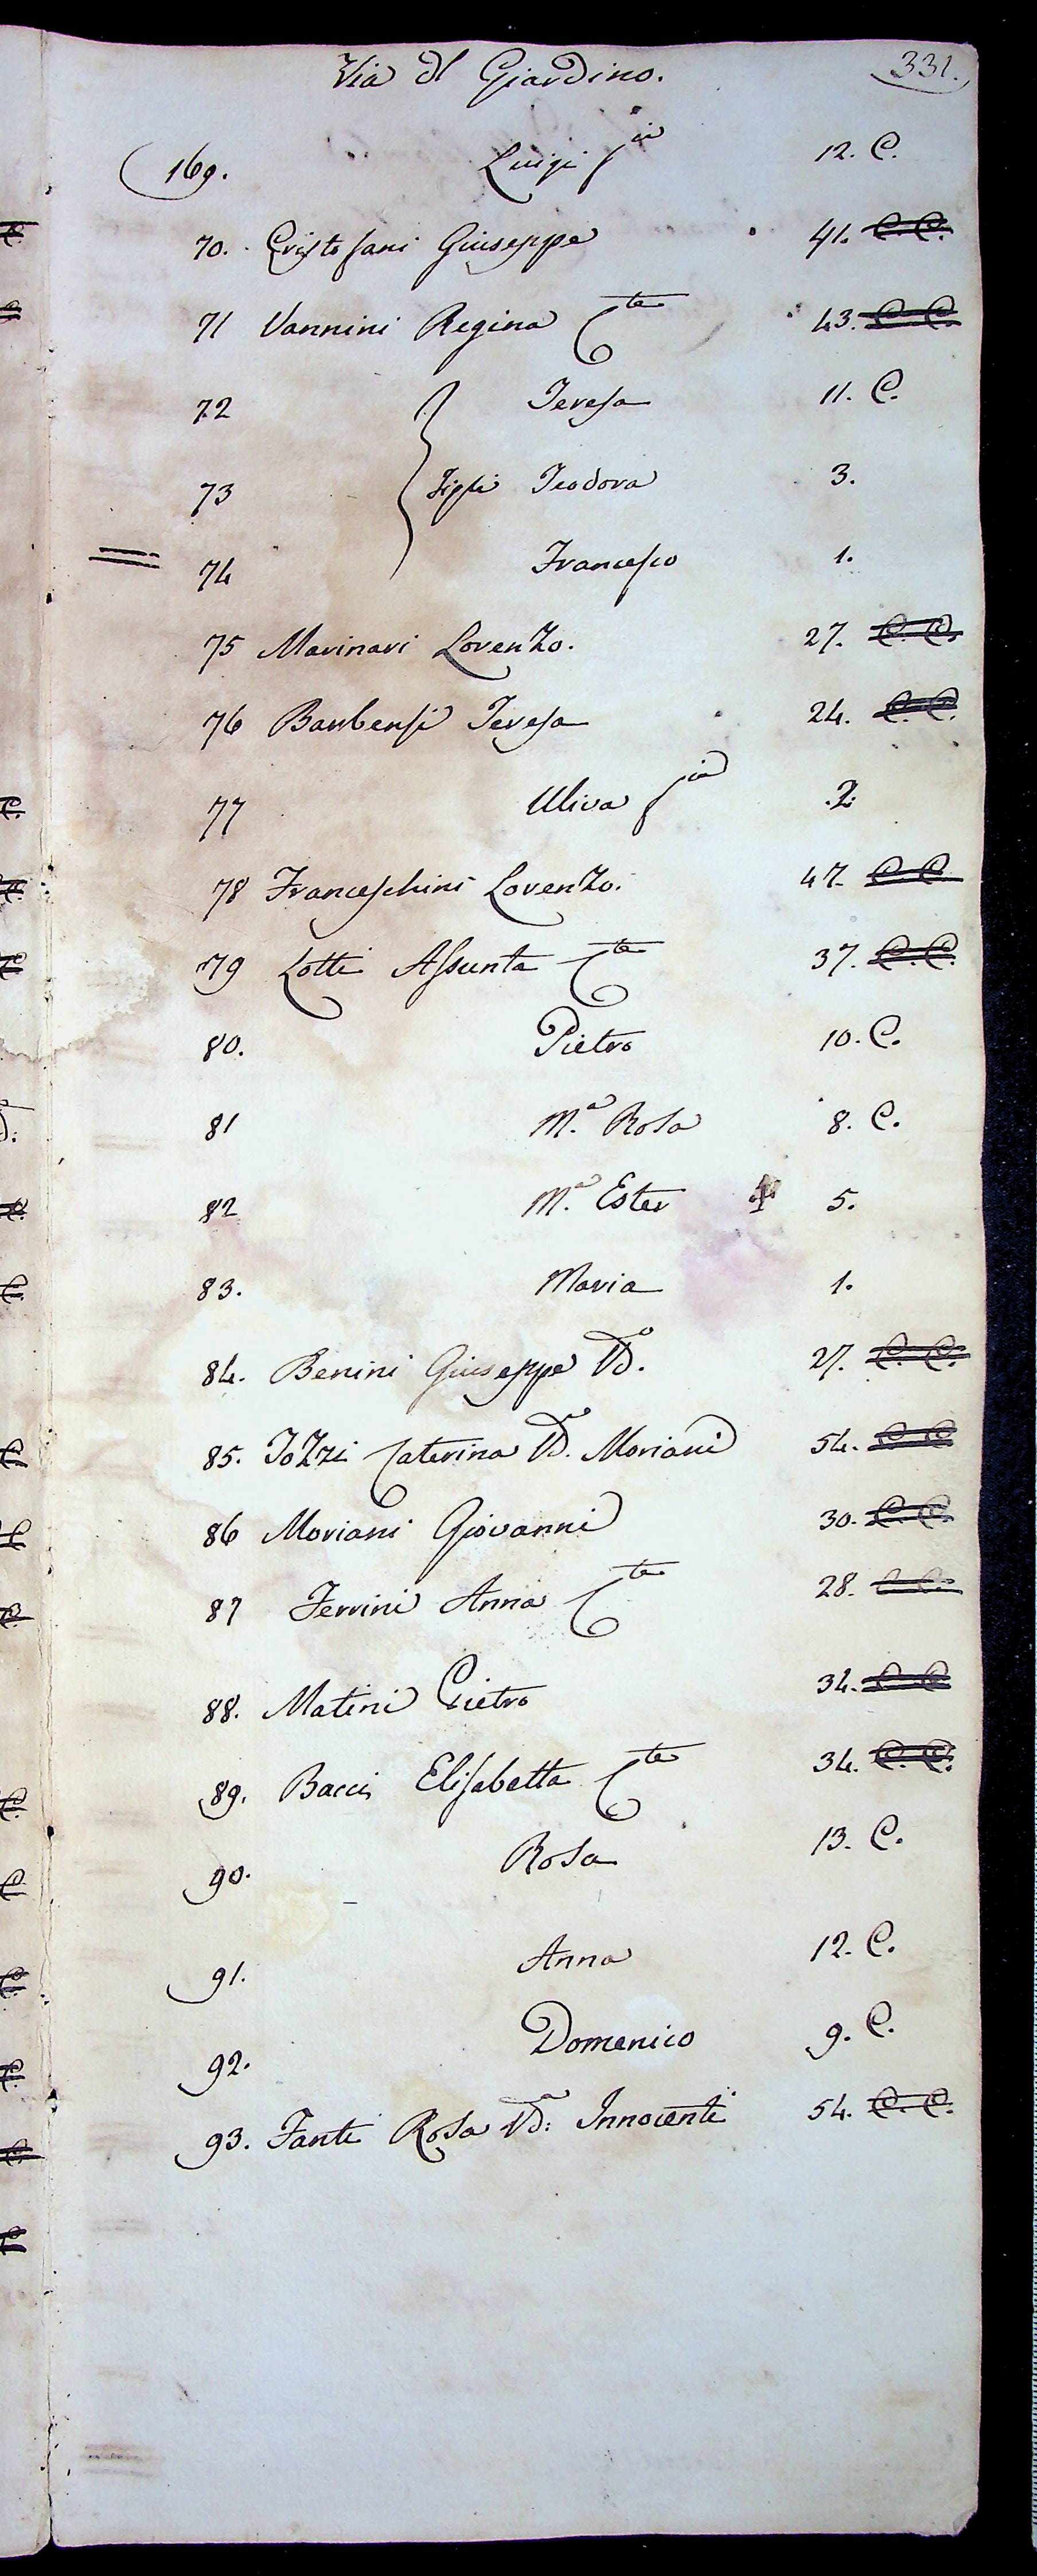 Via dl Giardino. 331.
169. Luigi fio 12. C.
70. Cristofani Giuseppe 41. C. C.
71 Vannini Regina Cte 43. C. C.
72 Teresa 11. C.
73 Figli Teodora 3.
74 Francesco 1.
75 Marinari Lorenzo. 27. C. C.
76 Barbensi Teresa 24. C. C.
77 Uliva fia 2.
78 Franceschini Lorenzo. 47. C C.
79 Lotti Assunta Cte 37. C. C.
80. Pietro 10. C.
81 Ma. Rosa 8. C.
82 Ma. Ester 5.
83. Maria 1.
84. Benini Giuseppe Vdo. 27. C. C.
85. Tozzi Caterina Vda. Moriani 54. C C
86 Moriani Giovanni 30. C C.
87 Ferrini Anna Cte 28. C C.
88. Matini Pietro 34. C C
89. Bacci Elisabetta Cte 34. C. C.
90. Rosa 13. C.
91. Anna 12. C.
92. Domenico 9. C.
93. Fanti Rosa Vda: Innocenti 54. C. C.